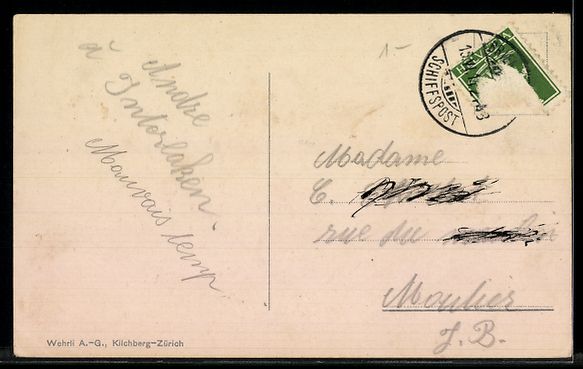 André
à Interlaken.
Mauvais temp
1-
SCHIFFSPOST
Madame
C.
rue du
Moutier
J. B.
Wehrli A.-G., Kilchberg-Zürich